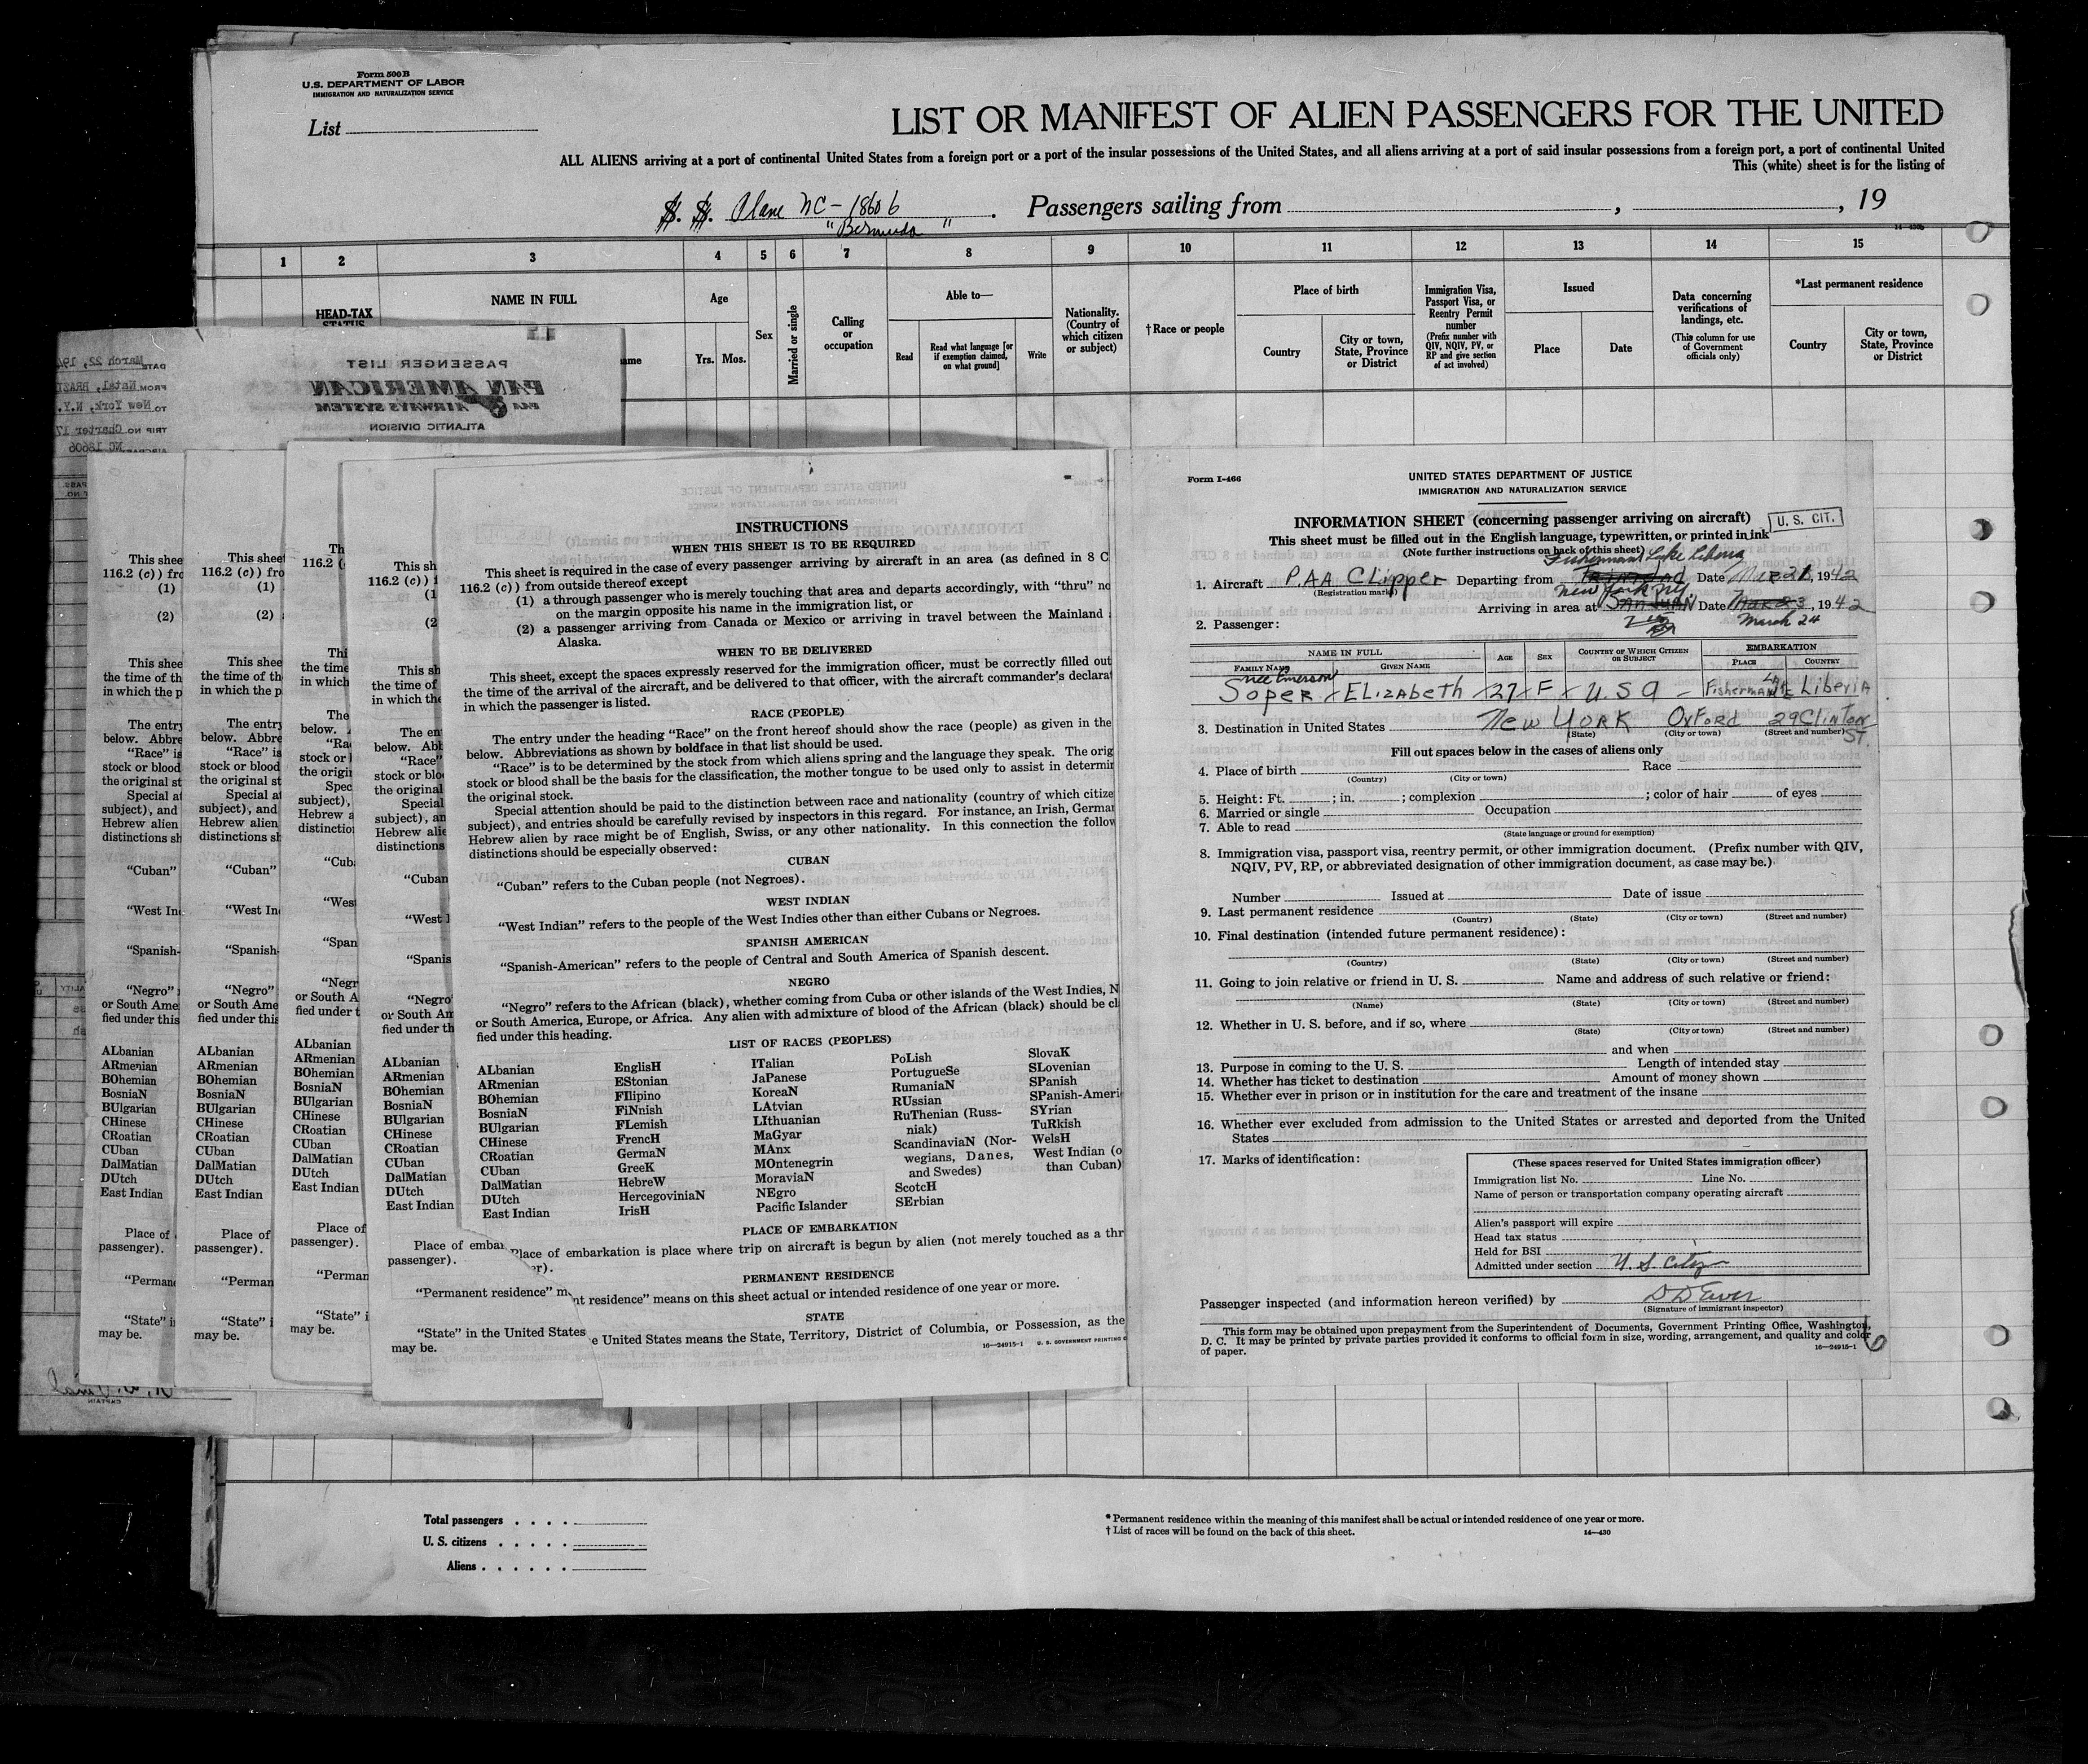 Form 500B
U.S. DEPARTMENT OF LABOR
IMMIGRATION AND NATURALIZATION SERVICE
List
LIST OR MANIFEST OF ALIEN PASSENGERS FOR THE UNITED
ALL ALIENS arriving at a port of continental United States from a foreign port or a port of the insular possessions of the United States, and all aliens arriving at a port of said insular possessions from a foreign port, a port of continental United
This (white) sheet is for the listing of
S. S. Plane NC-18606 . Passengers sailing from , , 19
"Bermuda"
1 2 3 4 5 6 7 8 9 10 11 12 13 14 15
HEAD-TAX STATUS
NAME IN FULL
Age
Yrs. Mos.
Sex
Married or single
Calling or occupation
Able to—
Read
Read what language [or if exemption claimed, on what ground]
Write
Nationality. (Country of which citizen or subject)
†Race or people
Place of birth
Country
City or town, State, Province or District
Immigration Visa, Passport Visa, or Reentry Permit number
(Prefix number with QIV, NQIV, PV, or RP and give section of act involved)
Issued
Place
Date
Data concerning verifications of landings, etc.
(This column for use of Government officials only)
*Last permanent residence
Country
City or town, State, Province or District
PASSENGER LIST
PAN AMERICAN
PAA AIRWAYS SYSTEM
ATLANTIC DIVISION
DATE March 22, 194
FROM Natal, BRAZI
TO New York, N.Y.
TRIP NO. Charter 17
NC 18606
CAPTAIN
INSTRUCTIONS
WHEN THIS SHEET IS TO BE REQUIRED
This sheet is required in the case of every passenger arriving by aircraft in an area (as defined in 8 C
116.2 (c)) from outside thereof except
(1) a through passenger who is merely touching that area and departs accordingly, with "thru" no
on the margin opposite his name in the immigration list, or
(2) a passenger arriving from Canada or Mexico or arriving in travel between the Mainland
Alaska.
WHEN TO BE DELIVERED
This sheet, except the spaces expressly reserved for the immigration officer, must be correctly filled out
the time of the arrival of the aircraft, and be delivered to that officer, with the aircraft commander's declarat
in which the passenger is listed.
RACE (PEOPLE)
The entry under the heading "Race" on the front hereof should show the race (people) as given in the
below. Abbreviations as shown by boldface in that list should be used.
"Race" is to be determined by the stock from which aliens spring and the language they speak. The orig
stock or blood shall be the basis for the classification, the mother tongue to be used only to assist in determin
the original stock.
Special attention should be paid to the distinction between race and nationality (country of which citize
subject), and entries should be carefully revised by inspectors in this regard. For instance, an Irish, German
Hebrew alien by race might be of English, Swiss, or any other nationality. In this connection the follow
distinctions should be especially observed:
CUBAN
"Cuban" refers to the Cuban people (not Negroes).
WEST INDIAN
"West Indian" refers to the people of the West Indies other than either Cubans or Negroes.
SPANISH AMERICAN
"Spanish-American" refers to the people of Central and South America of Spanish descent.
NEGRO
"Negro" refers to the African (black), whether coming from Cuba or other islands of the West Indies, N
or South America, Europe, or Africa. Any alien with admixture of blood of the African (black) should be cl
fied under this heading.
LIST OF RACES (PEOPLES)
ALbanian
ARmenian
BOhemian
BosniaN
BUlgarian
CHinese
CRoatian
CUban
DalMatian
DUtch
East Indian
EnglisH
EStonian
FIlipino
FiNnish
FLemish
FrencH
GermaN
GreeK
HebreW
HercegoviniaN
IrisH
ITalian
JaPanese
KoreaN
LAtvian
LIthuanian
MaGyar
MAnx
MOntenegrin
MoraviaN
NEgro
Pacific Islander
PoLish
PortugueSe
RumaniaN
RUssian
RuThenian (Russ-
niak)
ScandinaviaN (Nor-
wegians, Danes,
and Swedes)
ScotcH
SErbian
SlovaK
SLovenian
SPanish
SPanish-Ameri
SYrian
TuRkish
WelsH
West Indian (o
than Cuban)
PLACE OF EMBARKATION
Place of embarkation is place where trip on aircraft is begun by alien (not merely touched as a thr
er).
PERMANENT RESIDENCE
nt residence" means on this sheet actual or intended residence of one year or more.
STATE
e United States means the State, Territory, District of Columbia, or Possession, as the
16—24915-1 U. S. GOVERNMENT PRINTING O
Place of embar
passenger).
"Permanent residence" m
"State" in the United States
may be.
Form I-466
UNITED STATES DEPARTMENT OF JUSTICE
IMMIGRATION AND NATURALIZATION SERVICE
INFORMATION SHEET (concerning passenger arriving on aircraft)
U. S. CIT.
This sheet must be filled out in the English language, typewritten, or printed in ink
(Note further instructions on back of this sheet)
Fisherman's Lake Liberia
1. Aircraft P.A.A CLIPPER Departing from TRINIDAD Date Mar 21, 1942
(Registration mark)
New York NY.
Arriving in area at SAN JUAN Date Mar 23, 1942
March 24
2. Passenger:
NAME IN FULL
FAMILY NAME GIVEN NAME
AGE SEX COUNTRY OF WHICH CITIZEN OR SUBJECT
EMBARKATION
PLACE COUNTRY
nee Emerson
SOPER ELIZABETH 27 F USA Fisherman LAKE LIBERIA
3. Destination in United States NEW YORK OXFORD 29 CLINTON ST.
(State) (City or town) (Street and number)
Fill out spaces below in the cases of aliens only
4. Place of birth Race
(Country) (City or town)
5. Height: Ft. ; in. ; complexion ; color of hair of eyes
6. Married or single Occupation
7. Able to read
(State language or ground for exemption)
8. Immigration visa, passport visa, reentry permit, or other immigration document. (Prefix number with QIV,
NQIV, PV, RP, or abbreviated designation of other immigration document, as case may be.)
Number Issued at Date of issue
9. Last permanent residence
(Country) (State) (City or town) (Street and number)
10. Final destination (intended future permanent residence):
(Country) (State) (City or town) (Street and number)
11. Going to join relative or friend in U. S. Name and address of such relative or friend:
(Name) (State) (City or town) (Street and number)
12. Whether in U. S. before, and if so, where
(State) (City or town) (Street and number)
and when
13. Purpose in coming to the U. S. Length of intended stay
14. Whether has ticket to destination Amount of money shown
15. Whether ever in prison or in institution for the care and treatment of the insane
16. Whether ever excluded from admission to the United States or arrested and deported from the United
States
17. Marks of identification:
(These spaces reserved for United States immigration officer)
Immigration list No. Line No.
Name of person or transportation company operating aircraft
Alien's passport will expire
Head tax status
Held for BSI
Admitted under section U. S. Citizen
Passenger inspected (and information hereon verified) by
(Signature of immigrant inspector)
This form may be obtained upon prepayment from the Superintendent of Documents, Government Printing Office, Washington,
D. C. It may be printed by private parties provided it conforms to official form in size, wording, arrangement, and quality and color
of paper.
16—24915-1
6
Total passengers
U. S. citizens
Aliens
* Permanent residence within the meaning of this manifest shall be actual or intended residence of one year or more.
† List of races will be found on the back of this sheet.
14—430